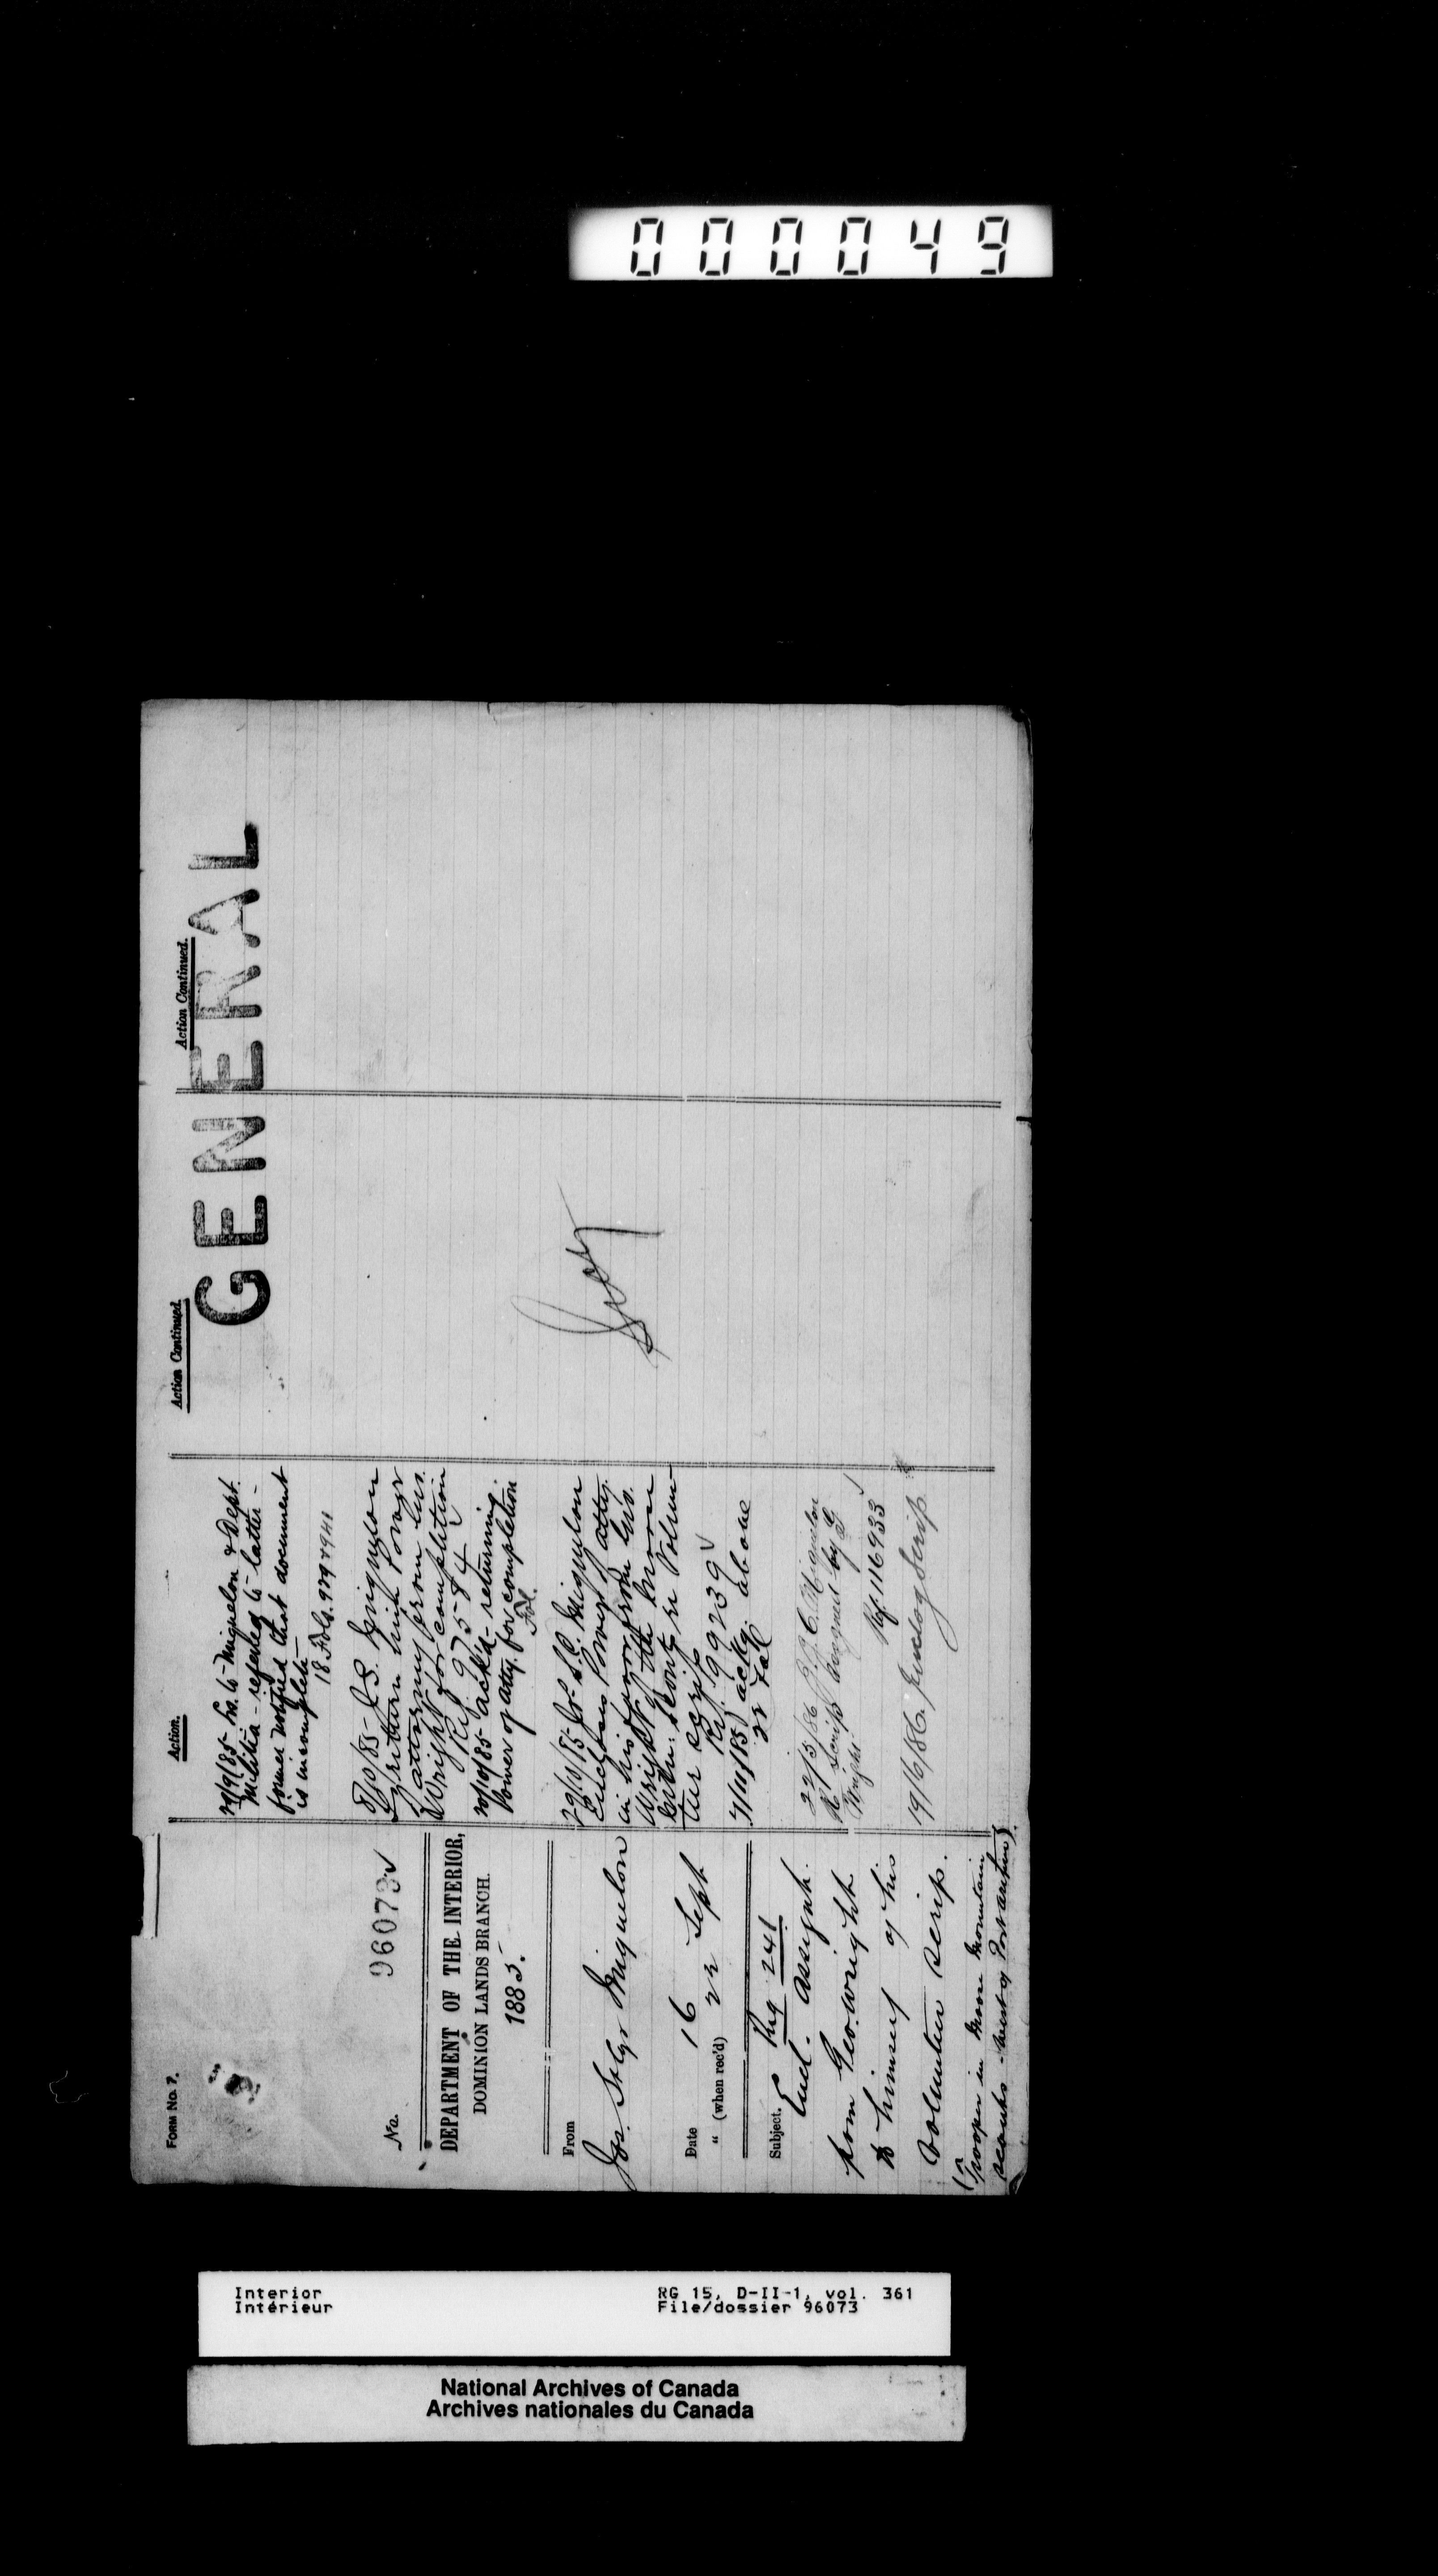 000049
FORM NO. 7.
No. 96073
DEPARTMENT OF THE INTERIOR,
DOMINION LANDS BRANCH.
1885.
From
Jos. Miquelon
Date 16 Sept
" (when rec'd) 22
Subject. Reg 241
Encl. assignt.
from Geo. Wright
to himself of his
Volunteer scrip.
(Trooper in Moose Mountain
scouts
Action.
29/9/85 to Miquelon & Dept.
Militia - referred to latter -
former notified that document
is incomplete
18 Fols.
8/10/85 J.S. Miquelon
return with Power
attorney from Geo.
Wright for completion
Ref. 97584
20/10/85 ackd - returning
Power of atty. for completion
Fol.
29/10/85 Jos. S.C. Miquelon
Encloses Power of atty.
in his favor from Geo.
Wright of the Moose
Mtn. Scouts re Volun-
teer scrip
Ref. 99239
7/11/85 ackg. above
22 Fol
22/5/86 J.C. Miquelon
Re scrip assigned by G
Wright
Ref. 116933
19/6/86. scrip
Action Continued.
Action Continued.
GENERAL
Interior
Intérieur
RG 15, D-II-1, vol. 361
File/dossier 96073
National Archives of Canada
Archives nationales du Canada